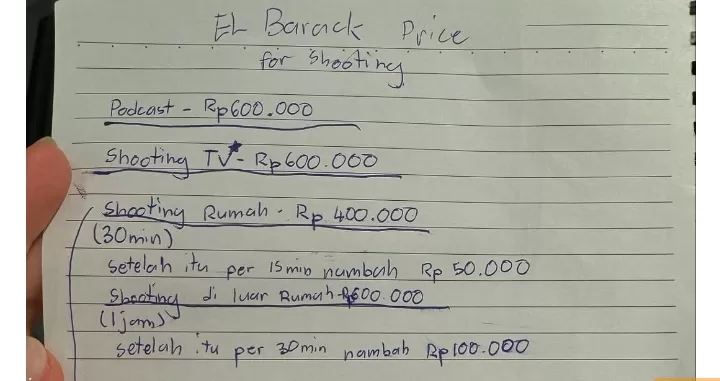 EL Barack Price
for shooting
Podcast - Rp600.000
Shooting TV* - Rp600.000
Shooting Rumah - Rp 400.000
(30min)
setelah itu per 15min nambah Rp 50.000
Shooting di luar Rumah - Rp600.000
(1jam)
setelah itu per 30min nambah Rp100.000